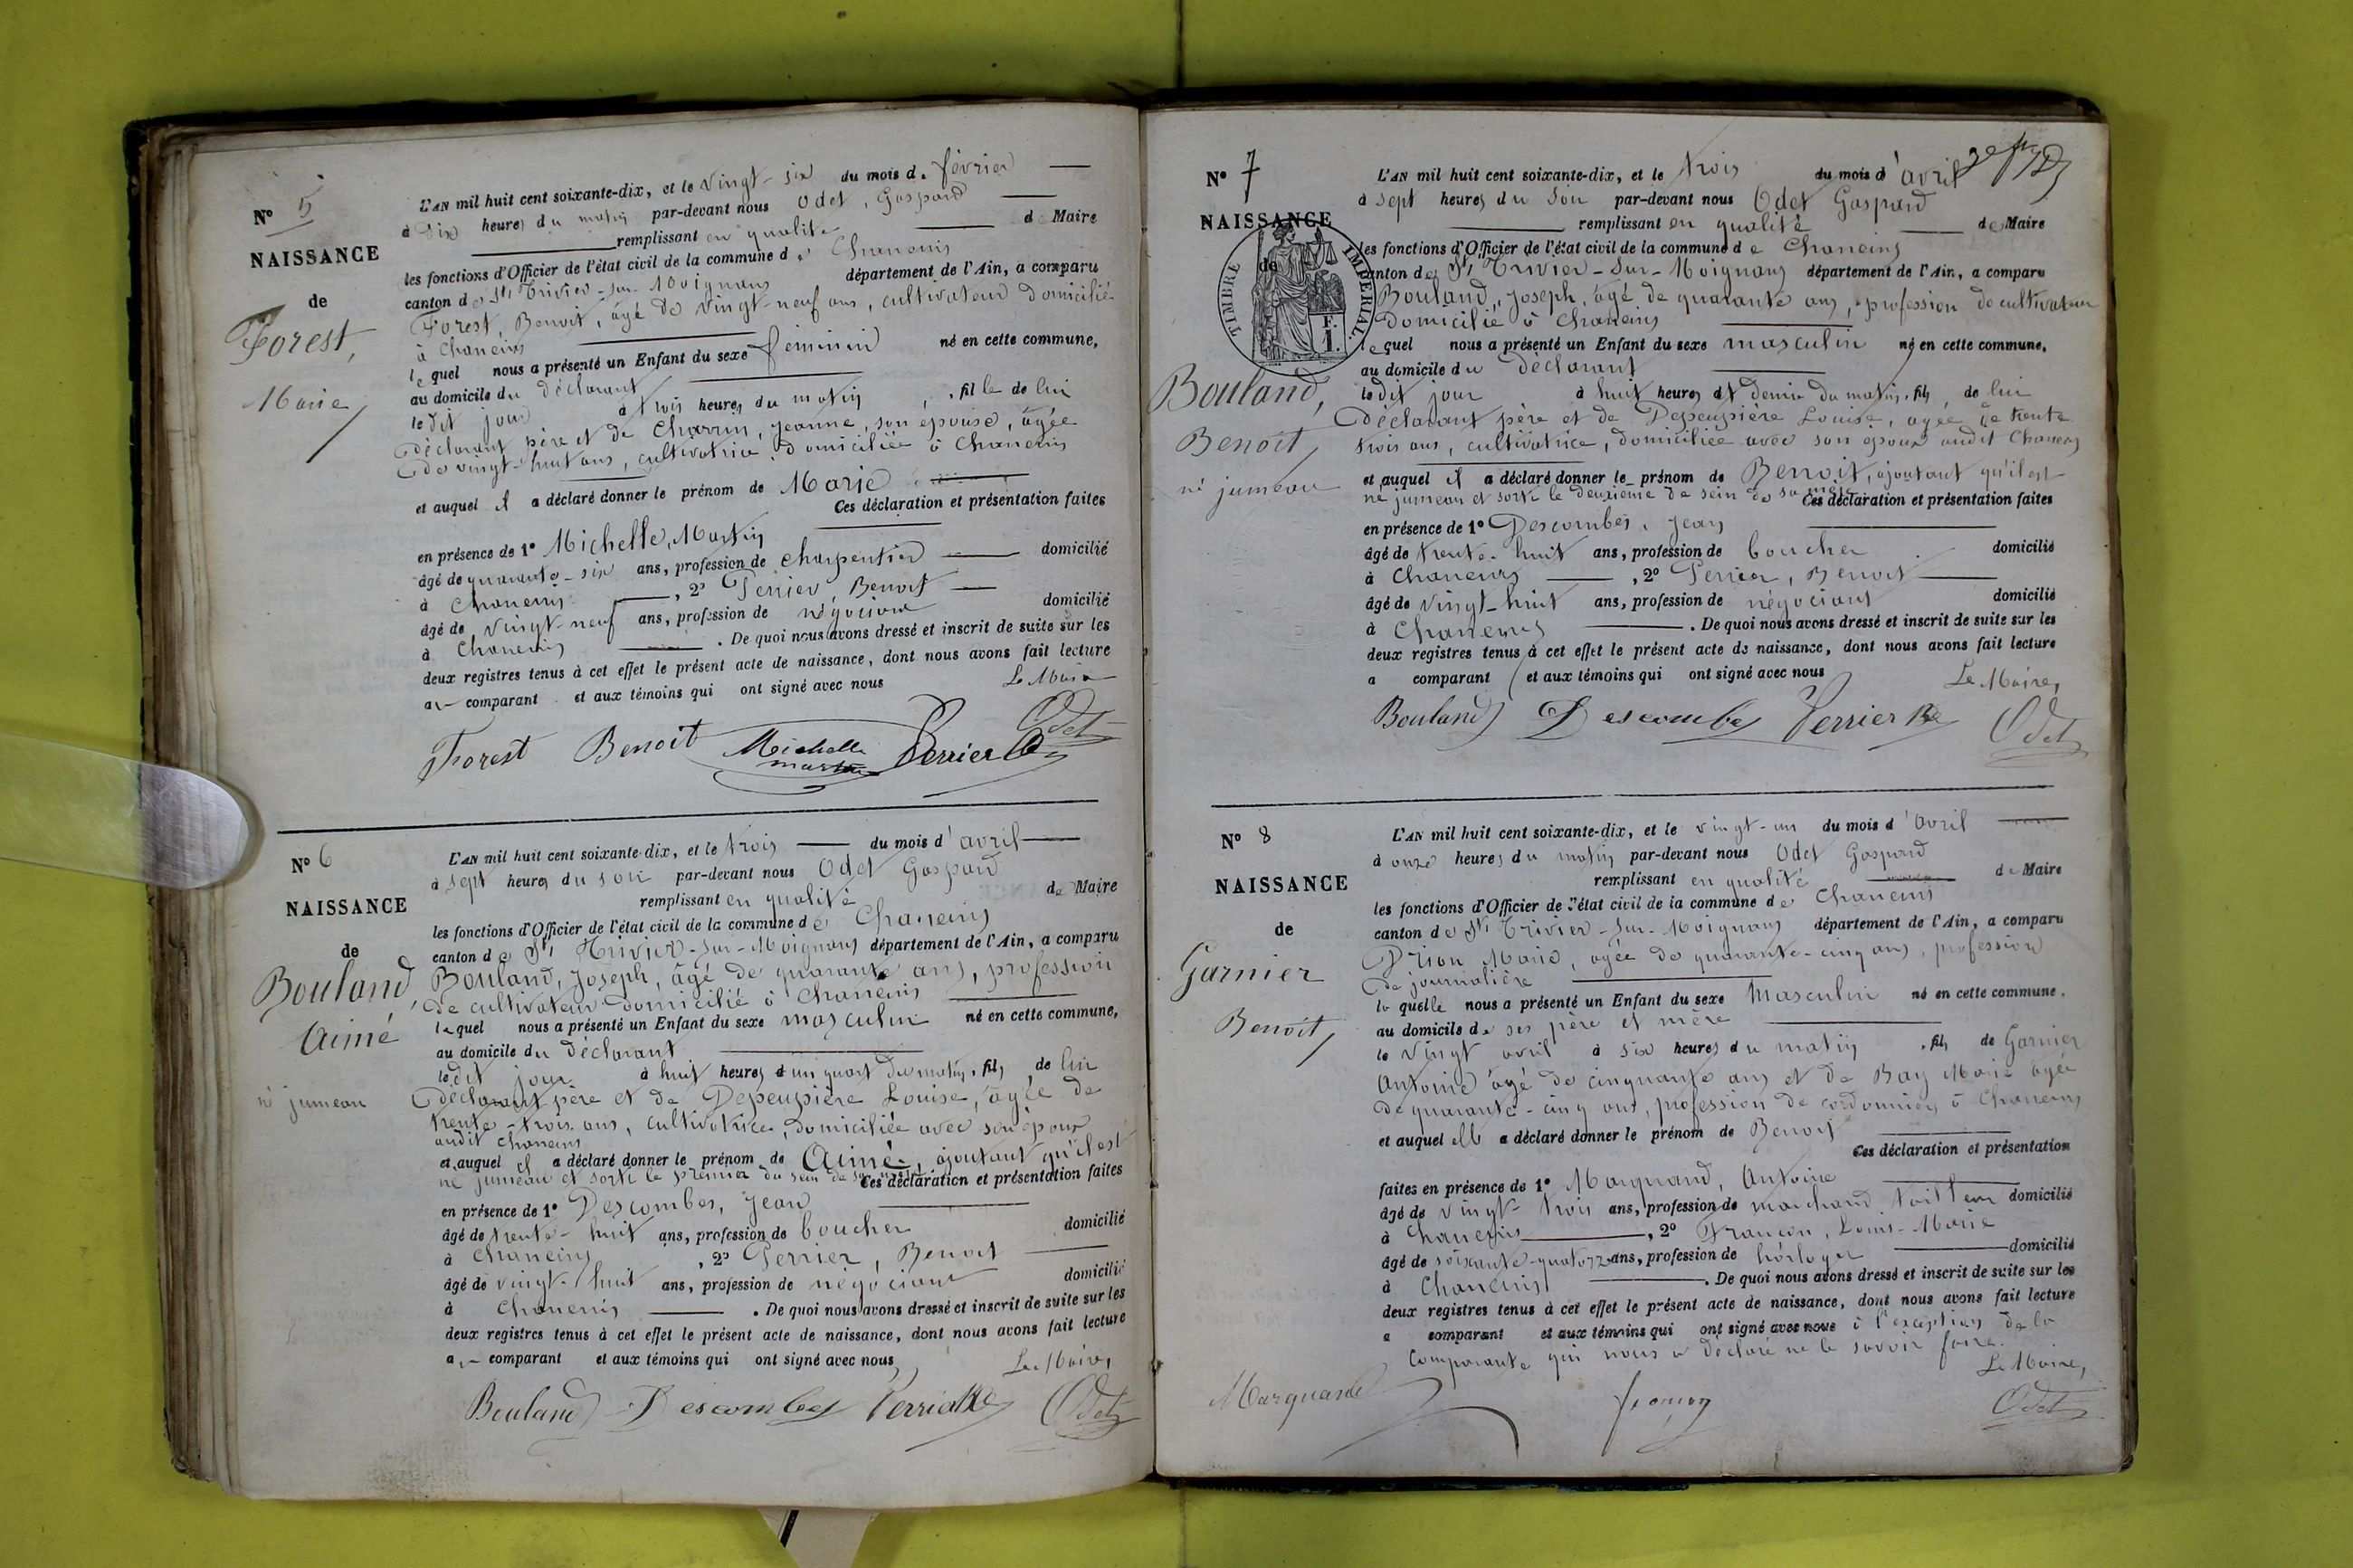 N° 5
NAISSANCE
de
Forest,
Marie
L'AN mil huit cent soixante-dix, et le vingt-six du mois de février
à six heures du matin par-devant nous Odet, Gaspard
remplissant en qualité de Maire
les fonctions d'Officier de l'état civil de la commune de Chaneins
canton de St Trivier-sur-Moignans département de l'Ain, a comparu
Forest, Benoit, âgé de vingt-neuf ans, cultivateur domicilié
à Chaneins
lequel nous a présenté un Enfant du sexe féminin né en cette commune,
au domicile du déclarant
ledit jour à trois heures du matin, fille de lui
déclarant père et de Charrin, Jeanne, son épouse, âgée
de vingt-huit ans, cultivatrice, domiciliée à Chaneins
et auquel il a déclaré donner le prénom de Marie
Ces déclaration et présentation faites
en présence de 1° Michelle, Martin
âgé de quarante-six ans, profession de charpentier domicilié
à Chaneins, 2° Perrier, Benoit
âgé de vingt-neuf ans, profession de négociant domicilié
à Chaneins. De quoi nous avons dressé et inscrit de suite sur les
deux registres tenus à cet effet le présent acte de naissance, dont nous avons fait lecture
au comparant et aux témoins qui ont signé avec nous
Le Maire
Forest Benoit Michelle martin Perrier Odet
N° 6
NAISSANCE
de
Bouland,
Aimé
né jumeau
L'AN mil huit cent soixante-dix, et le trois du mois d'avril
à sept heures du soir par-devant nous Odet Gaspard
remplissant en qualité de Maire
les fonctions d'Officier de l'état civil de la commune de Chaneins
canton de St Trivier-sur-Moignans département de l'Ain, a comparu
Bouland, Joseph, âgé de quarante ans, profession
de cultivateur domicilié à Chaneins
lequel nous a présenté un Enfant du sexe masculin né en cette commune,
au domicile du déclarant
ledit jour à huit heures et un quart du matin, fils de lui
déclarant père et de Depeupière Louise, âgée de
trente-trois ans, cultivatrice, domiciliée avec son époux
audit Chaneins
et auquel il a déclaré donner le prénom de Aimé, ajoutant qu'il est
né jumeau et sorti le premier du sein de sa mère Ces déclaration et présentation faites
en présence de 1° Descombes, Jean
âgé de trente-huit ans, profession de boucher domicilié
à Chaneins, 2° Perrier, Benoit
âgé de vingt-huit ans, profession de négociant domicilié
à Chaneins. De quoi nous avons dressé et inscrit de suite sur les
deux registres tenus à cet effet le présent acte de naissance, dont nous avons fait lecture
au comparant et aux témoins qui ont signé avec nous,
Le Maire,
Bouland Descombes Perrier Odet
N° 7
NAISSANCE
de
TIMBRE IMPÉRIAL.
F.
1.
Bouland,
Benoit,
né jumeau
L'AN mil huit cent soixante-dix, et le trois du mois d'avril
à sept heures du soir par-devant nous Odet Gaspard
remplissant en qualité de Maire
les fonctions d'Officier de l'état civil de la commune de Chaneins
canton de St Trivier-sur-Moignans département de l'Ain, a comparu
Bouland, Joseph, âgé de quarante ans, profession de cultivateur
domicilié à Chaneins
lequel nous a présenté un Enfant du sexe masculin né en cette commune,
au domicile du déclarant
ledit jour à huit heures et demie du matin, fils de lui
déclarant père et de Depeupière Louise, âgée de trente
trois ans, cultivatrice, domiciliée avec son époux audit Chaneins
et auquel il a déclaré donner le prénom de Benoit, ajoutant qu'il est
né jumeau et sorti le deuxième du sein de sa mère Ces déclaration et présentation faites
en présence de 1° Descombes, Jean
âgé de trente-huit ans, profession de boucher domicilié
à Chaneins, 2° Perrier, Benoit
âgé de vingt-huit ans, profession de négociant domicilié
à Chaneins. De quoi nous avons dressé et inscrit de suite sur les
deux registres tenus à cet effet le présent acte de naissance, dont nous avons fait lecture
a comparant et aux témoins qui ont signé avec nous
Le Maire,
Bouland Descombes Perrier Odet
N° 8
NAISSANCE
de
Garnier
Benoit,
L'AN mil huit cent soixante-dix, et le vingt-un du mois d'avril
à onze heures du matin par-devant nous Odet Gaspard
remplissant en qualité de Maire
les fonctions d'Officier de l'état civil de la commune de Chaneins
canton de St Trivier-sur-Moignans département de l'Ain, a comparu
Marie, âgée de quarante-cinq ans, profession
de journalière
laquelle nous a présenté un Enfant du sexe Masculin né en cette commune,
au domicile de ses père et mère
le vingt avril à six heures du matin, fils de Garnier
Antoine âgé de cinquante ans et de Bay Marie âgée
de quarante-cinq ans, profession de cordonnier à Chaneins
et auquel elle a déclaré donner le prénom de Benoit
Ces déclaration et présentation
faites en présence de 1° Marguand, Antoine
âgé de vingt-trois ans, profession de marchand tailleur domicilié
à Chaneins, 2° Francon, Louis-Marie
âgé de soixante-quatorze ans, profession de horloger domicilié
à Chaneins. De quoi nous avons dressé et inscrit de suite sur les
deux registres tenus à cet effet le présent acte de naissance, dont nous avons fait lecture
a comparant et aux témoins qui ont signé avec nous à l'exception de la
Comparante qui nous a déclaré ne le savoir faire.
Le Maire,
Marguand Odet